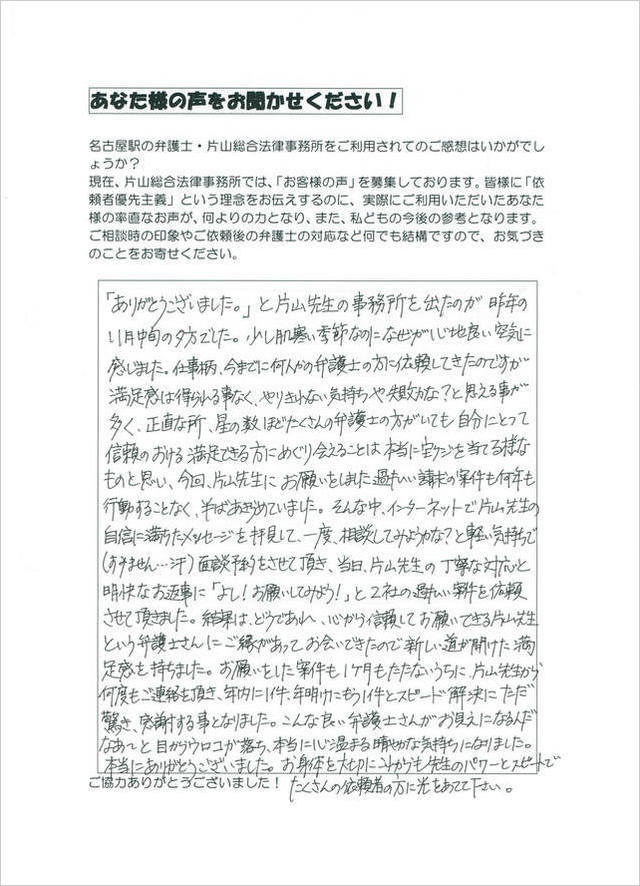 あなた様の声をお聞かせください！
名古屋駅の弁護士・片山総合法律事務所をご利用されてのご感想はいかがでし
ょうか？
現在、片山総合法律事務所では、「お客様の声」を募集しております。皆様に「依
頼者優先主義」という理念をお伝えするのに、実際にご利用いただいたあなた
様の率直なお声が、何よりの力となり、また、私どもの今後の参考となります。
ご相談時の印象やご依頼後の弁護士の対応など何でも結構ですので、お気づき
のことをお寄せください。
「ありがとうございました。」と片山先生の事務所を出たのが昨年の
11月中旬の夕方でした。少し肌寒い季節なのになぜか心地良い空気に
感じました。仕事柄、今までに何人かの弁護士の方に依頼してきたのですが
満足感は得られる事なく、やりきれない気持ちや失敗かな？と思える事が
多く、正直な所、星の数ほどたくさんの弁護士の方がいても自分にとって
信頼のおける満足できる方にめぐり会えることは本当に宝クジを当てる様な
ものと思い、今回、片山先生にお願いをしました過払い請求の案件も何年も
行動することなく、半ばあきらめていました。そんな中、インターネットで片山先生の
自信に満ちたメッセージを拝見して、一度、相談してみようかな？と軽い気持ちで
(すみません…汗) 面談予約をさせて頂き、当日、片山先生の丁寧な対応と
明快なお返事に「よし！お願いしてみがう！」と2社の過払い案件を依頼
させて頂きました。結果は、どうであれ、心から信頼してお願いできる片山先生
という弁護士さんにご縁があってお会いできたので新しい道が開けた満
足感を持ちました。お願いをした案件も1ヶ月もたたないうちに、片山先生から
何度もご連絡を頂き、年内に1件、年明けにもう1件とスピード解決にただ
驚き、感謝する事となりました。こんな良い弁護士さんがお見えになるんだ
なあ〜と目からウロコが落ち、本当に心温まる晴やかな気持ちになりました。
本当にありがとうございました。お身体を大切にこれからも先生のパワーとスピードで
たくさんの依頼者の方に光をあてて下さい。
ご協力ありがとうございました！